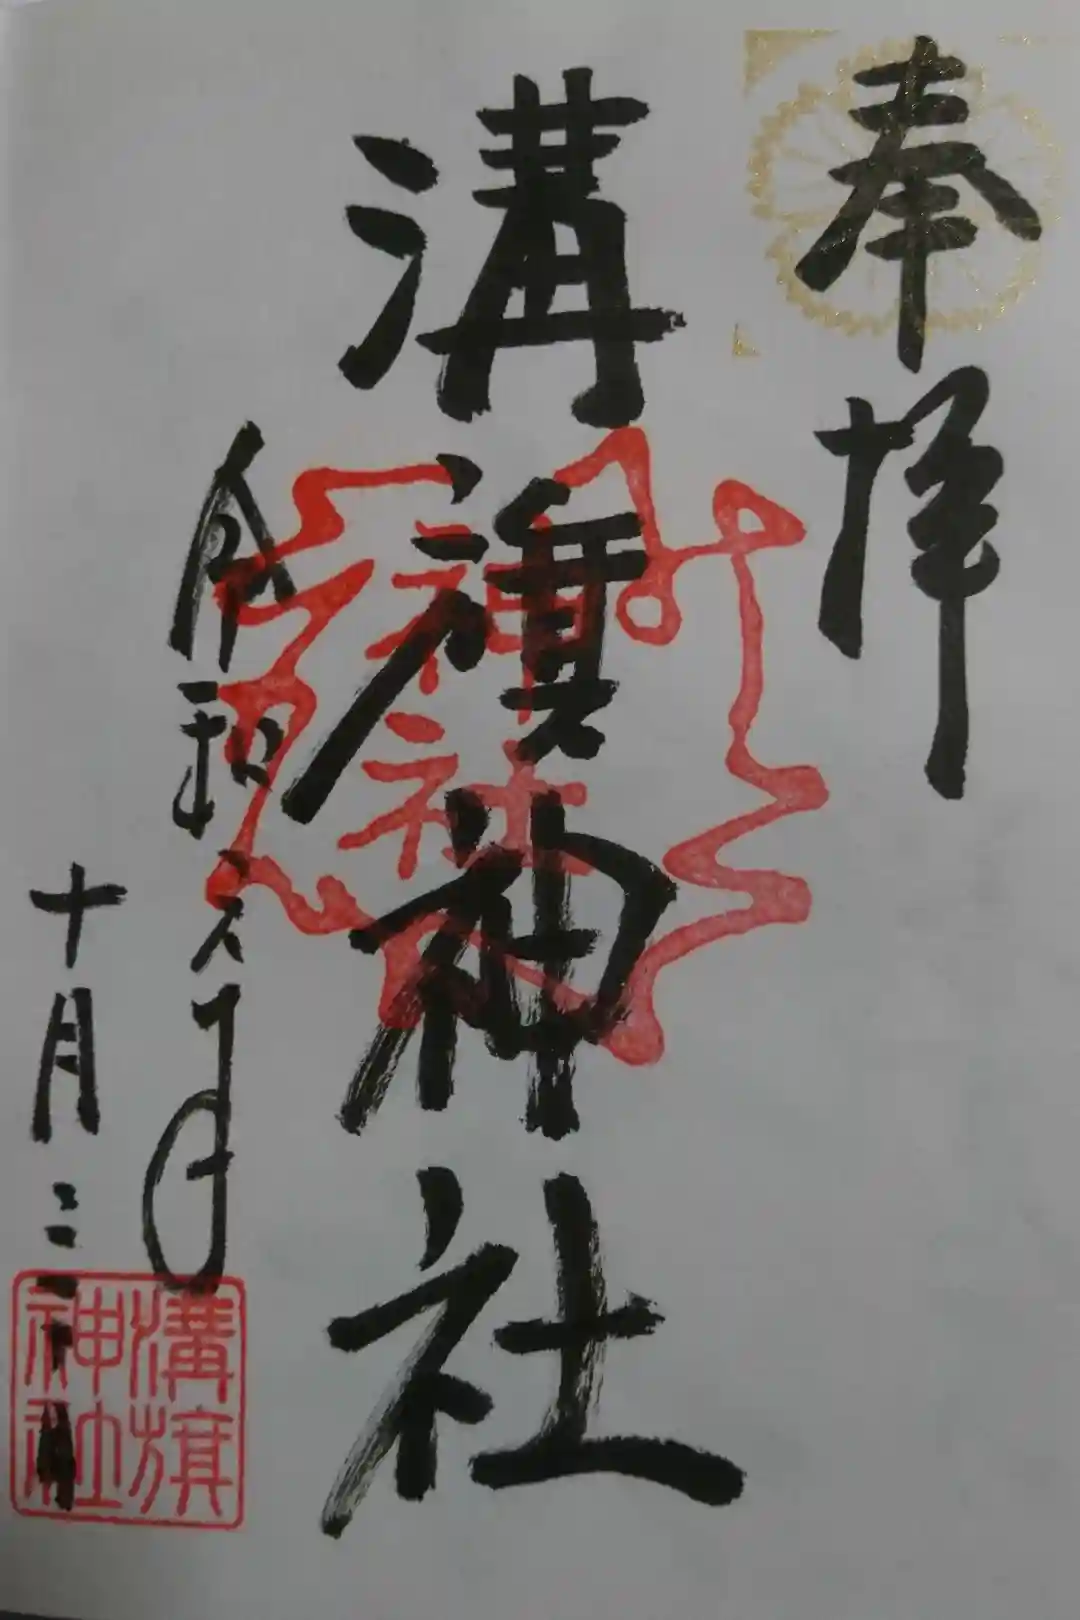 奉拝
溝旗神社
神社
令和六年
十月二十
溝旗
神社